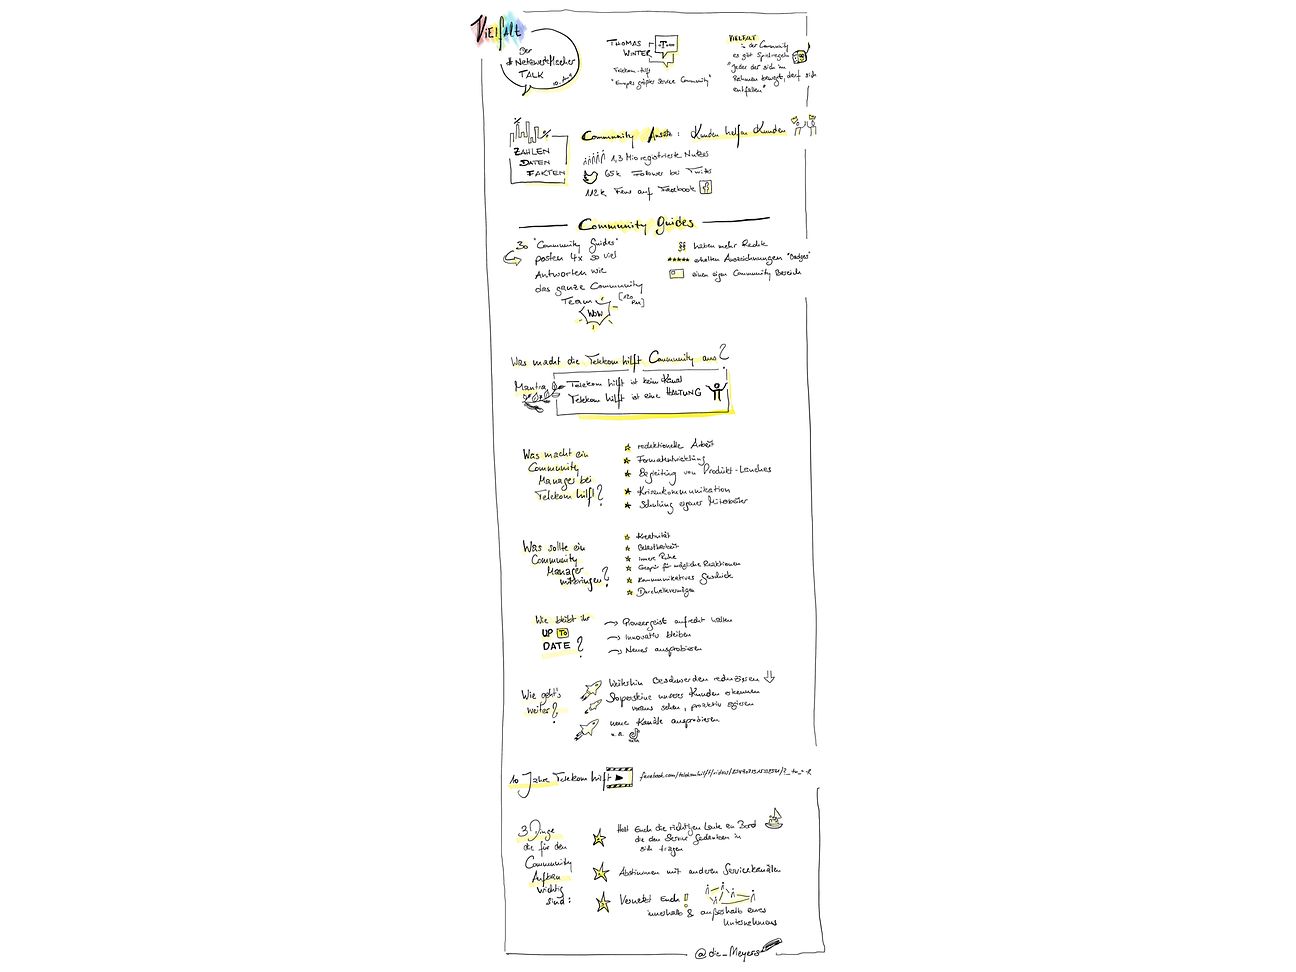 VIElfAlt
Der
#Netzwerkflüster
TALK
THOMAS
WINTER
Telekom-hilft
"Europas größte Service Community"
VIELFALT
in der Community
es gibt Spielregeln
"Jeder der sich im
Rahmen bewegt, darf sich
entfalten"
ZAHLEN
DATEN
FAKTEN
Community Ansatz: Kunden helfen Kunden
1,3 Mio registrierte Nutzer
65k Follower bei Twitter
112k Fans auf Facebook
Community Guides
30 "Community Guides"
posten 4x so viel
Antworten wie
das ganze Community
Team
WOW
§§ haben mehr Rechte
erhalten Auszeichnungen "Badges"
einen eigen Community Bereich
Was macht die Telekom hilft Community aus?
Mantra
Telekom hilft ist kein Kanal
Telekom hilft ist eine HALTUNG
Was macht ein
Community
Manager bei
Telekom hilft?
redaktionelle Arbeit
Formatentwicklung
Begleitung von Produkt-Launches
Krisenkommunikation
Schulung eigener Mitarbeiter
Was sollte ein
Community
Manager
mitbringen?
Kreativität
Belastbarkeit
innere Ruhe
Gespür für mögliche Reaktionen
Kommunikatives Geschick
Durchhaltevermögen
Wie bleibt ihr
UP TO
DATE?
Pioneergeist aufrecht halten
innovativ bleiben
Neues ausprobieren
Wie geht's
weiter?
Weiterhin Beschwerden reduzieren
unserer Kunden erkennen
voraus sehen, proaktiv agieren
neue Kanäle ausprobieren
u.a.
10 Jahre Telekom hilft
3 Dinge
die für den
Community
Aufbau
wichtig
sind:
Holt Euch die richtigen Leute an Bord
die den Service Gedanken in
sich tragen
Abstimmen mit anderen Servicekanälen
Vernetzt Euch!
innerhalb & außerhalb eures
Unternehmens
@die_Meyers